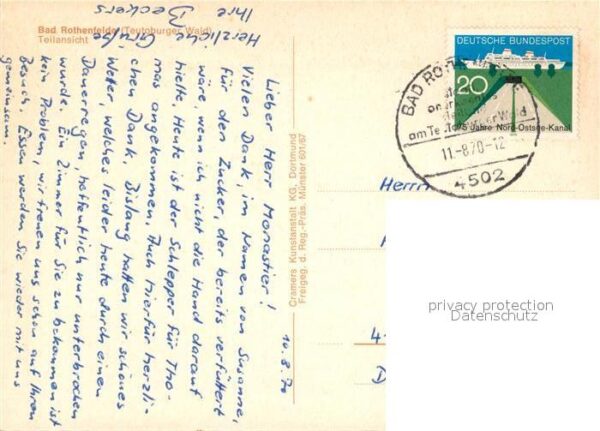 Bad Rothenfelde (Teutoburger Wald)
Teilansicht
10.8.70
Lieber Herr Monastier!
Vielen Dank, im Namen von Susanne,
für den Zucker, der bereits verfüttert
wäre wenn ich nicht die Hand darauf
hielte. Heute ist der Schlepper für Tho-
mas angekommen. Auch hierfür herzli-
chen Dank. Bislang hatten wir schönes
Wetter, welches leider heute durch einen
Dauerregen, hoffentlich nur unterbrochen
wurde. Ein Zimmer für Sie zu bekommen ist
kein Problem, wir freuen uns schon auf Ihren
Besuch. Essen werden Sie wieder mit uns
gemeinsam.
Herzliche Grüße
Ihre
Beckers
Cramers Kunstanstalt KG, Dortmund
Freigeg. d. Reg.-Präs. Münster 601/67
DEUTSCHE BUNDESPOST
20
75 Jahre Nord-Ostsee-Kanal
BAD ROTH
am Te
er Wald
11.-8.70-12
4502
Herrn
privacy protection
Datenschutz